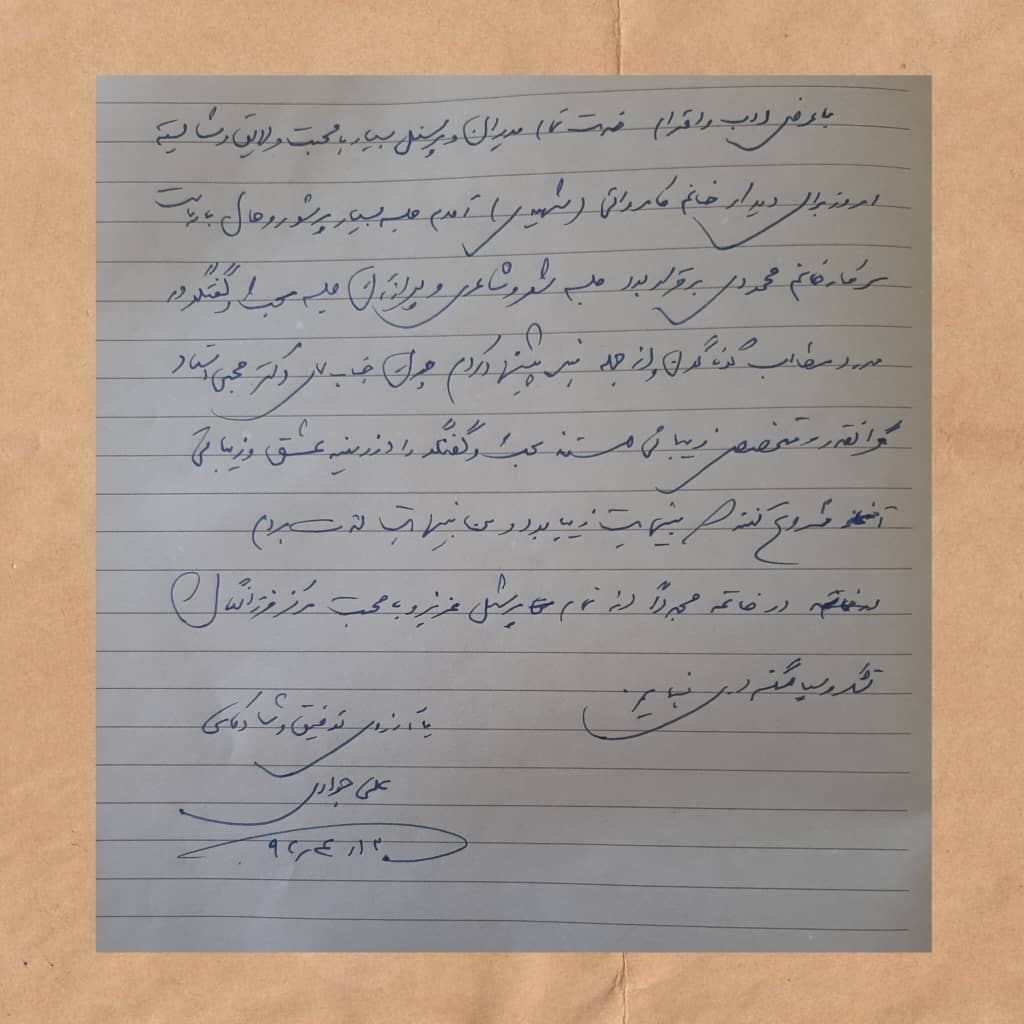 با عرض ادب و احترام خدمت تمام مدیران و پرسنل بسیار با محبت و لایق و شایسته
امروز برای دیدار خانم کامرواتی (شهیدی) آمدم جلسه بسیار پر شور و حال با ریاست
سرکار خانم محمودی برقرار بود جلسه شعر و شاعری و جلسه بحث و گفتگو در
مورد مطالب گوناگون از جمله پیشنهاد کردم چون جناب دکتر محبی استاد
گرانقدر و متخصص زیبائی هستند بحث و گفتگو را در زمینه عشق و زیبائی
شروع کنند بینهایت زیبا بود و من بینهایت لذت بردم
در خاتمه مجددا از تمام پرسنل عزیز و با محبت مرکز فرزانگان
تشکر و سپاسگزاری مینمایم.
با آرزوی توفیق و شادکامی
علی جوادی
۹۲/۴/۱۳